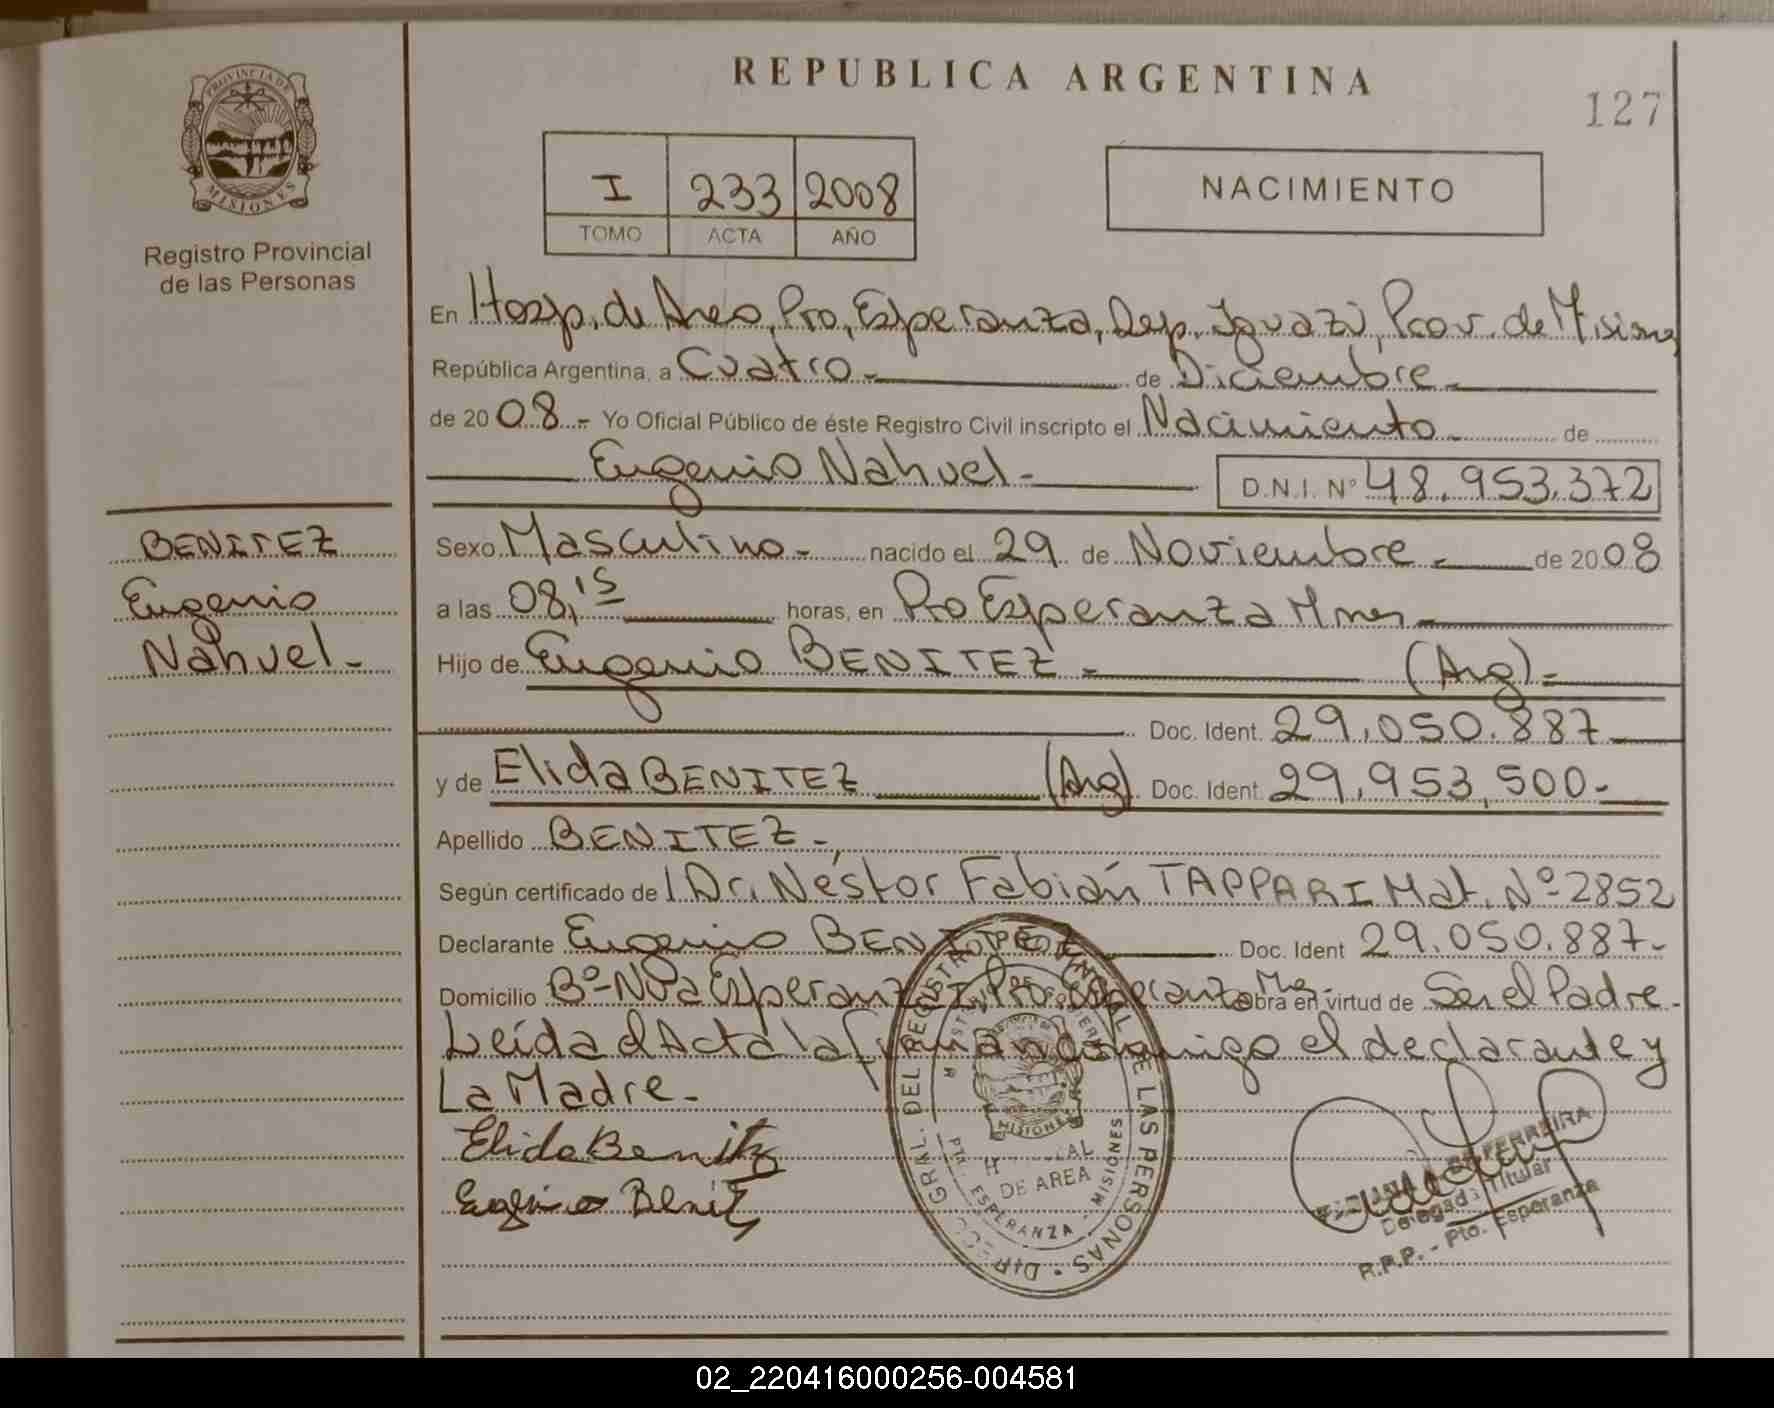 REPUBLICA ARGENTINA
127
PROVINCIA DE MISIONES
Registro Provincial
de las Personas
I 233 2008
TOMO ACTA AÑO
NACIMIENTO
En Hosp. de Area, Pto, Esperanza, Dep. Iguazú, Prov. de Misiones
República Argentina, a Cuatro.- de Diciembre.-
de 20 08.- Yo Oficial Público de éste Registro Civil inscripto el Nacimiento.- de
Eugenio Nahuel.- D.N.I. Nº 48.953.372
BENITEZ
Eugenio
Nahuel.-
Sexo Masculino.- nacido el 29 de Noviembre.- de 20 08
a las 08,15 horas, en Pto Esperanza Mnes.-
Hijo de Eugenio BENITEZ.- (Arg).-
Doc. Ident. 29.050.887
y de Elida BENITEZ (Arg) Doc. Ident. 29.953.500.-
Apellido BENITEZ.-
Según certificado de Dr. Néstor Fabián TAPPARI Mat. Nº 2852
Declarante Eugenio BENITEZ Doc. Ident 29.050.887.-
Domicilio Bº- Esperanza Pto. Esperanza Mnes. obra en virtud de Ser el Padre.-
Leída el Acta la firman conmigo el declarante y
La Madre.-
Elida Benitez
Benitez
DIRECC. GRAL. DEL REGISTRO PROVINCIAL DE LAS PERSONAS
MISIONES
DE AREA
PTO. ESPERANZA - MISIONES
FERREIRA
Delegada Titular
R.P.P. - Pto. Esperanza
02_220416000256-004581